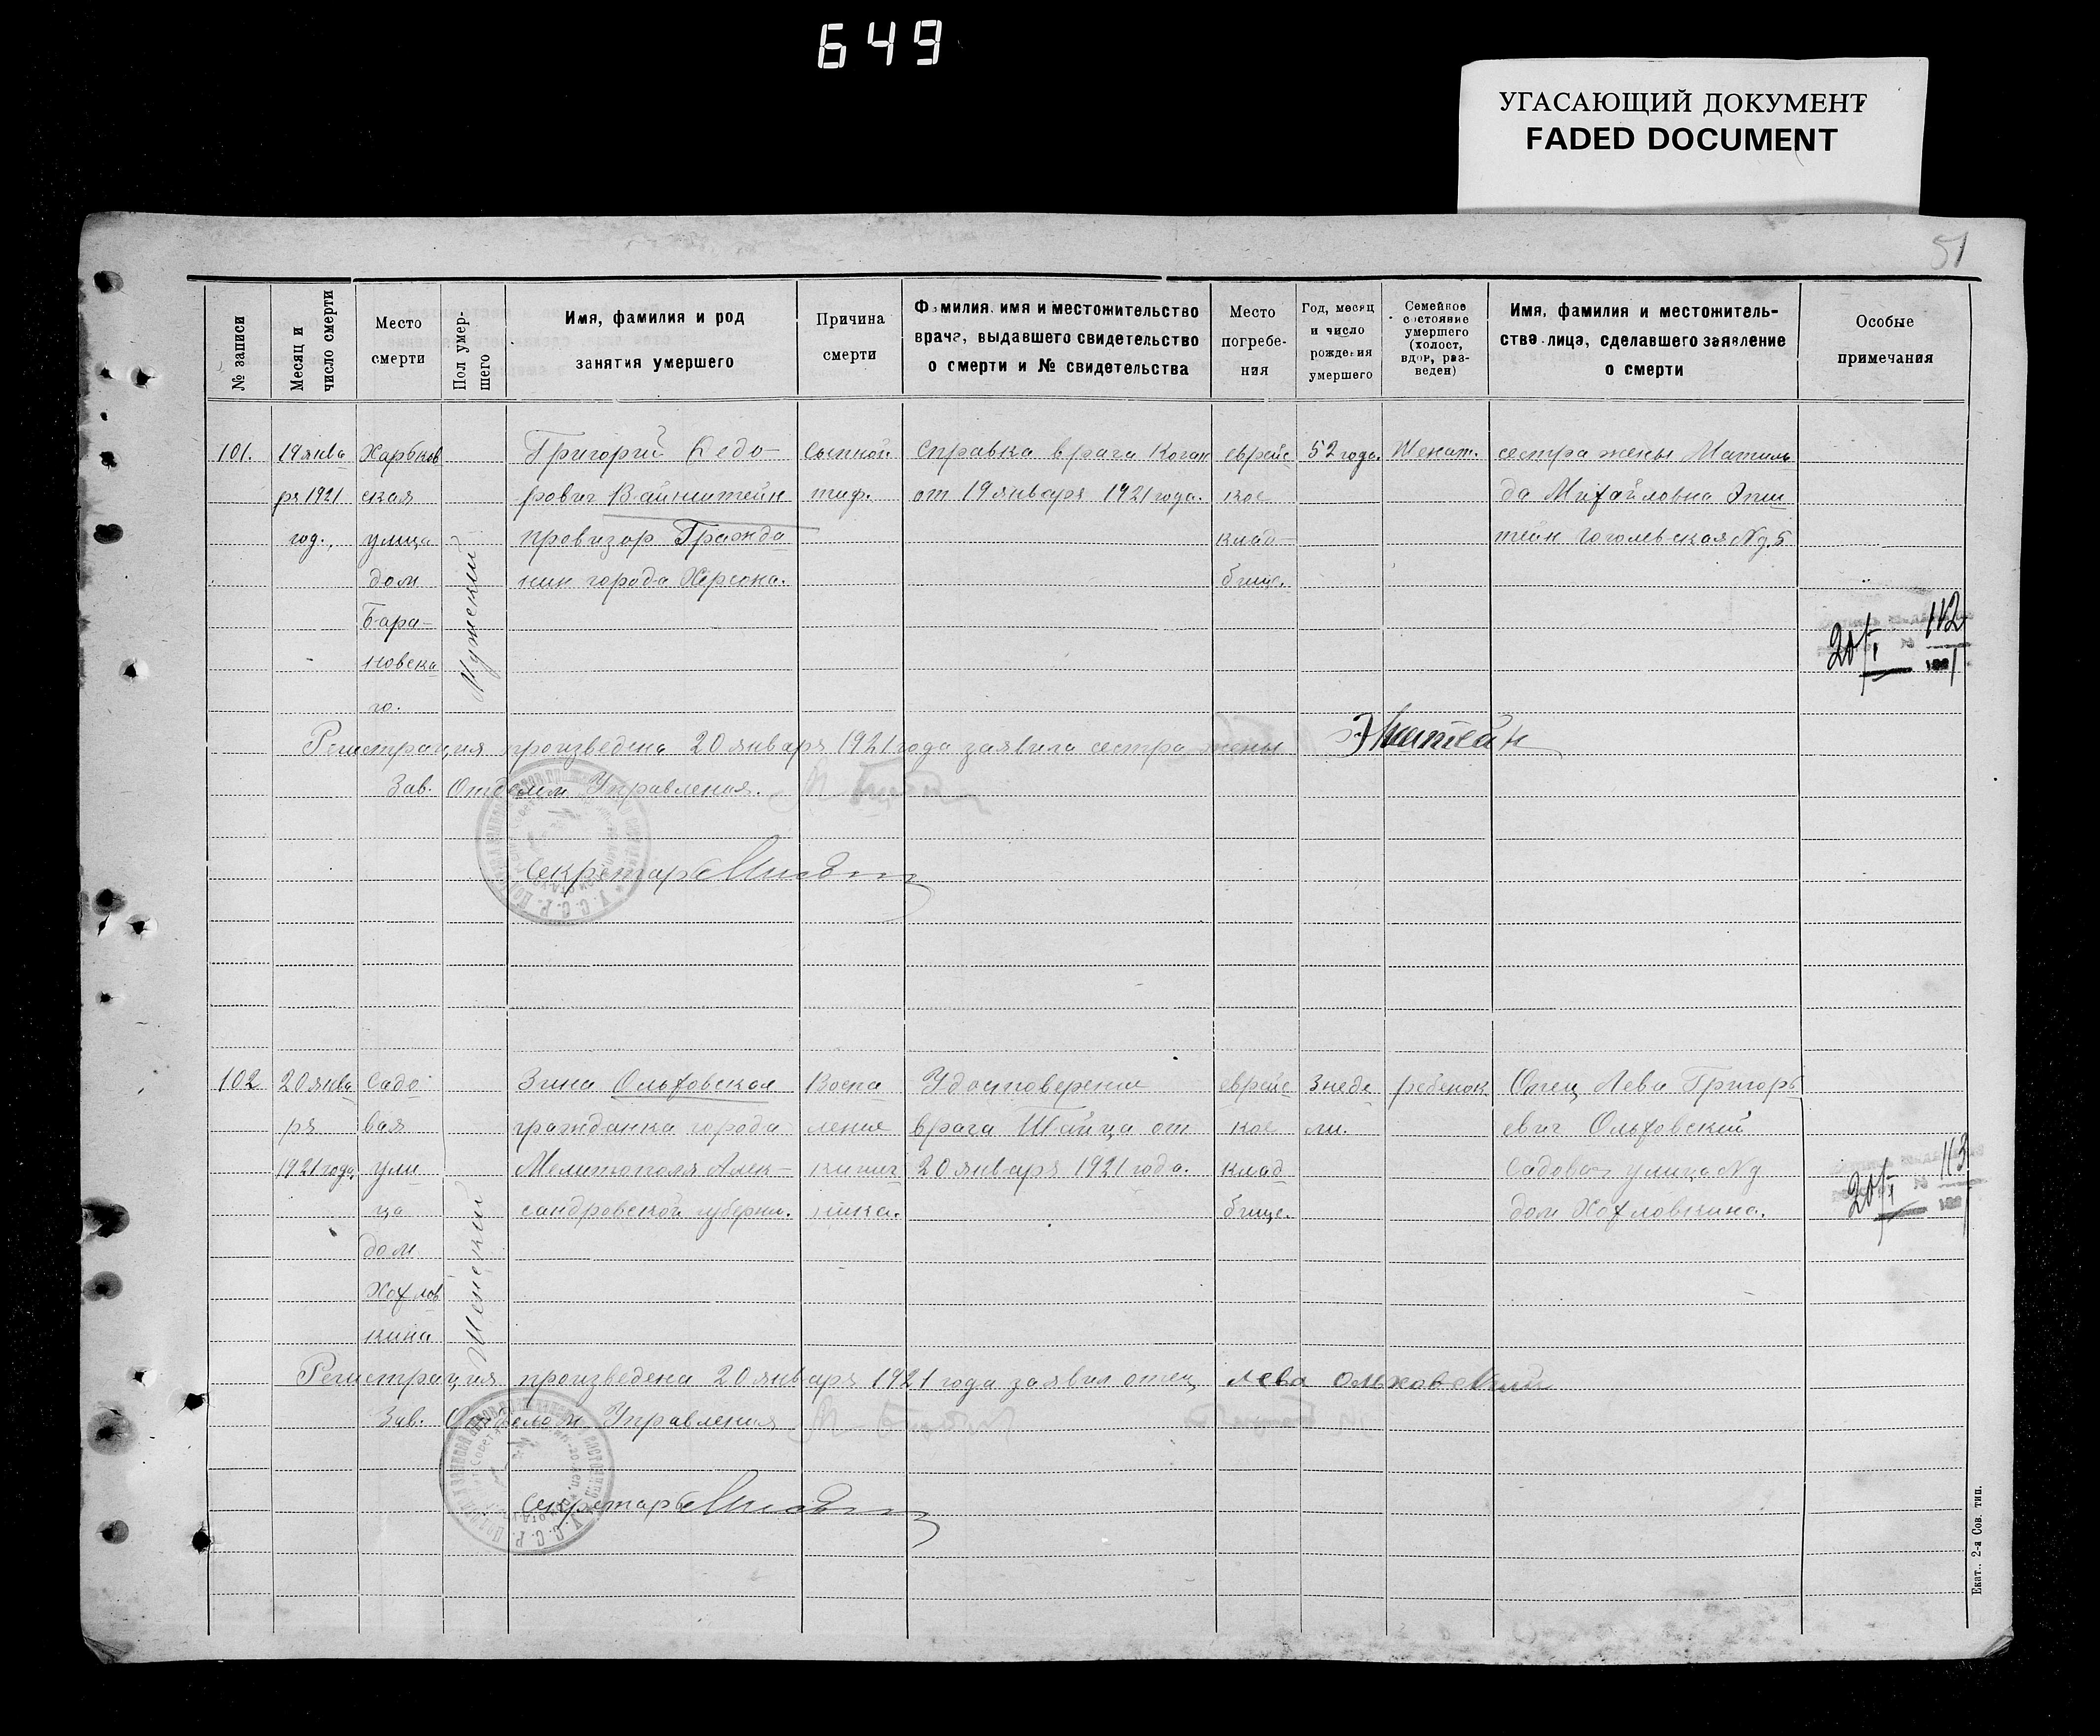 649
УГАСАЮЩИЙ ДОКУМЕНТ
FADED DOCUMENT
51
№ записи
Месяц и
число смерти
Место
смерти
Пол умер-
шего
Имя, фамилия и род
занятия умершего
Причина
смерти
Фамилия, имя и местожительство
врача, выдавшего свидетельство
о смерти и № свидетельства
Место
погребе-
ния
Год, месяц
и число
рождения
умершего
Семейное
состояние
умершего
(холост,
вдов, раз-
веден)
Имя, фамилия и местожитель-
ство лица, сделавшего заявление
о смерти
Особые
примечания
101.
19 янва
ря 1921
год.
Харьков
ская
улица
дом
Бара-
новска
го.
Мужской
Григорий
рович Вайнштейн
провизор Гражда
нин города Херсона.
Сыпной
тиф.
Справка врача Коган
от 19 января 1921 года.
еврейс
кое
клад-
бище.
52 года.
Женат.
сестра жены Матиль
да Михайловна Эпш
тейн Гоголевская № 5
20/I 112
1921
Регистрация произведена 20 января 1921 года заявила сестра жены Эпштейн
Зав. Отделом Управления.
Секретарь
102
20 янва
ря
1921 года
Садо
вая
ули
ца
дом
Хохлов
кина
Женский
Зина Ольховская
гражданка города
Мелитополя Алек-
сандровской губерни.
Воспа
ление
кишеч
ника.
Удостоверение
врача Шайца от
20 января 1921 года.
еврейс
кое
клад
бище.
3 неде
ли.
ребенок
Отец Лева Григорь
евич Ольховский
Садовая улица №
дом Хохловкина.
20/I 113
1921
Регистрация произведена 20 января 1921 года заявил отец Лева Ольховский
Зав. Отделом Управления
Секретарь
Екат. 2-я Сов. тип.